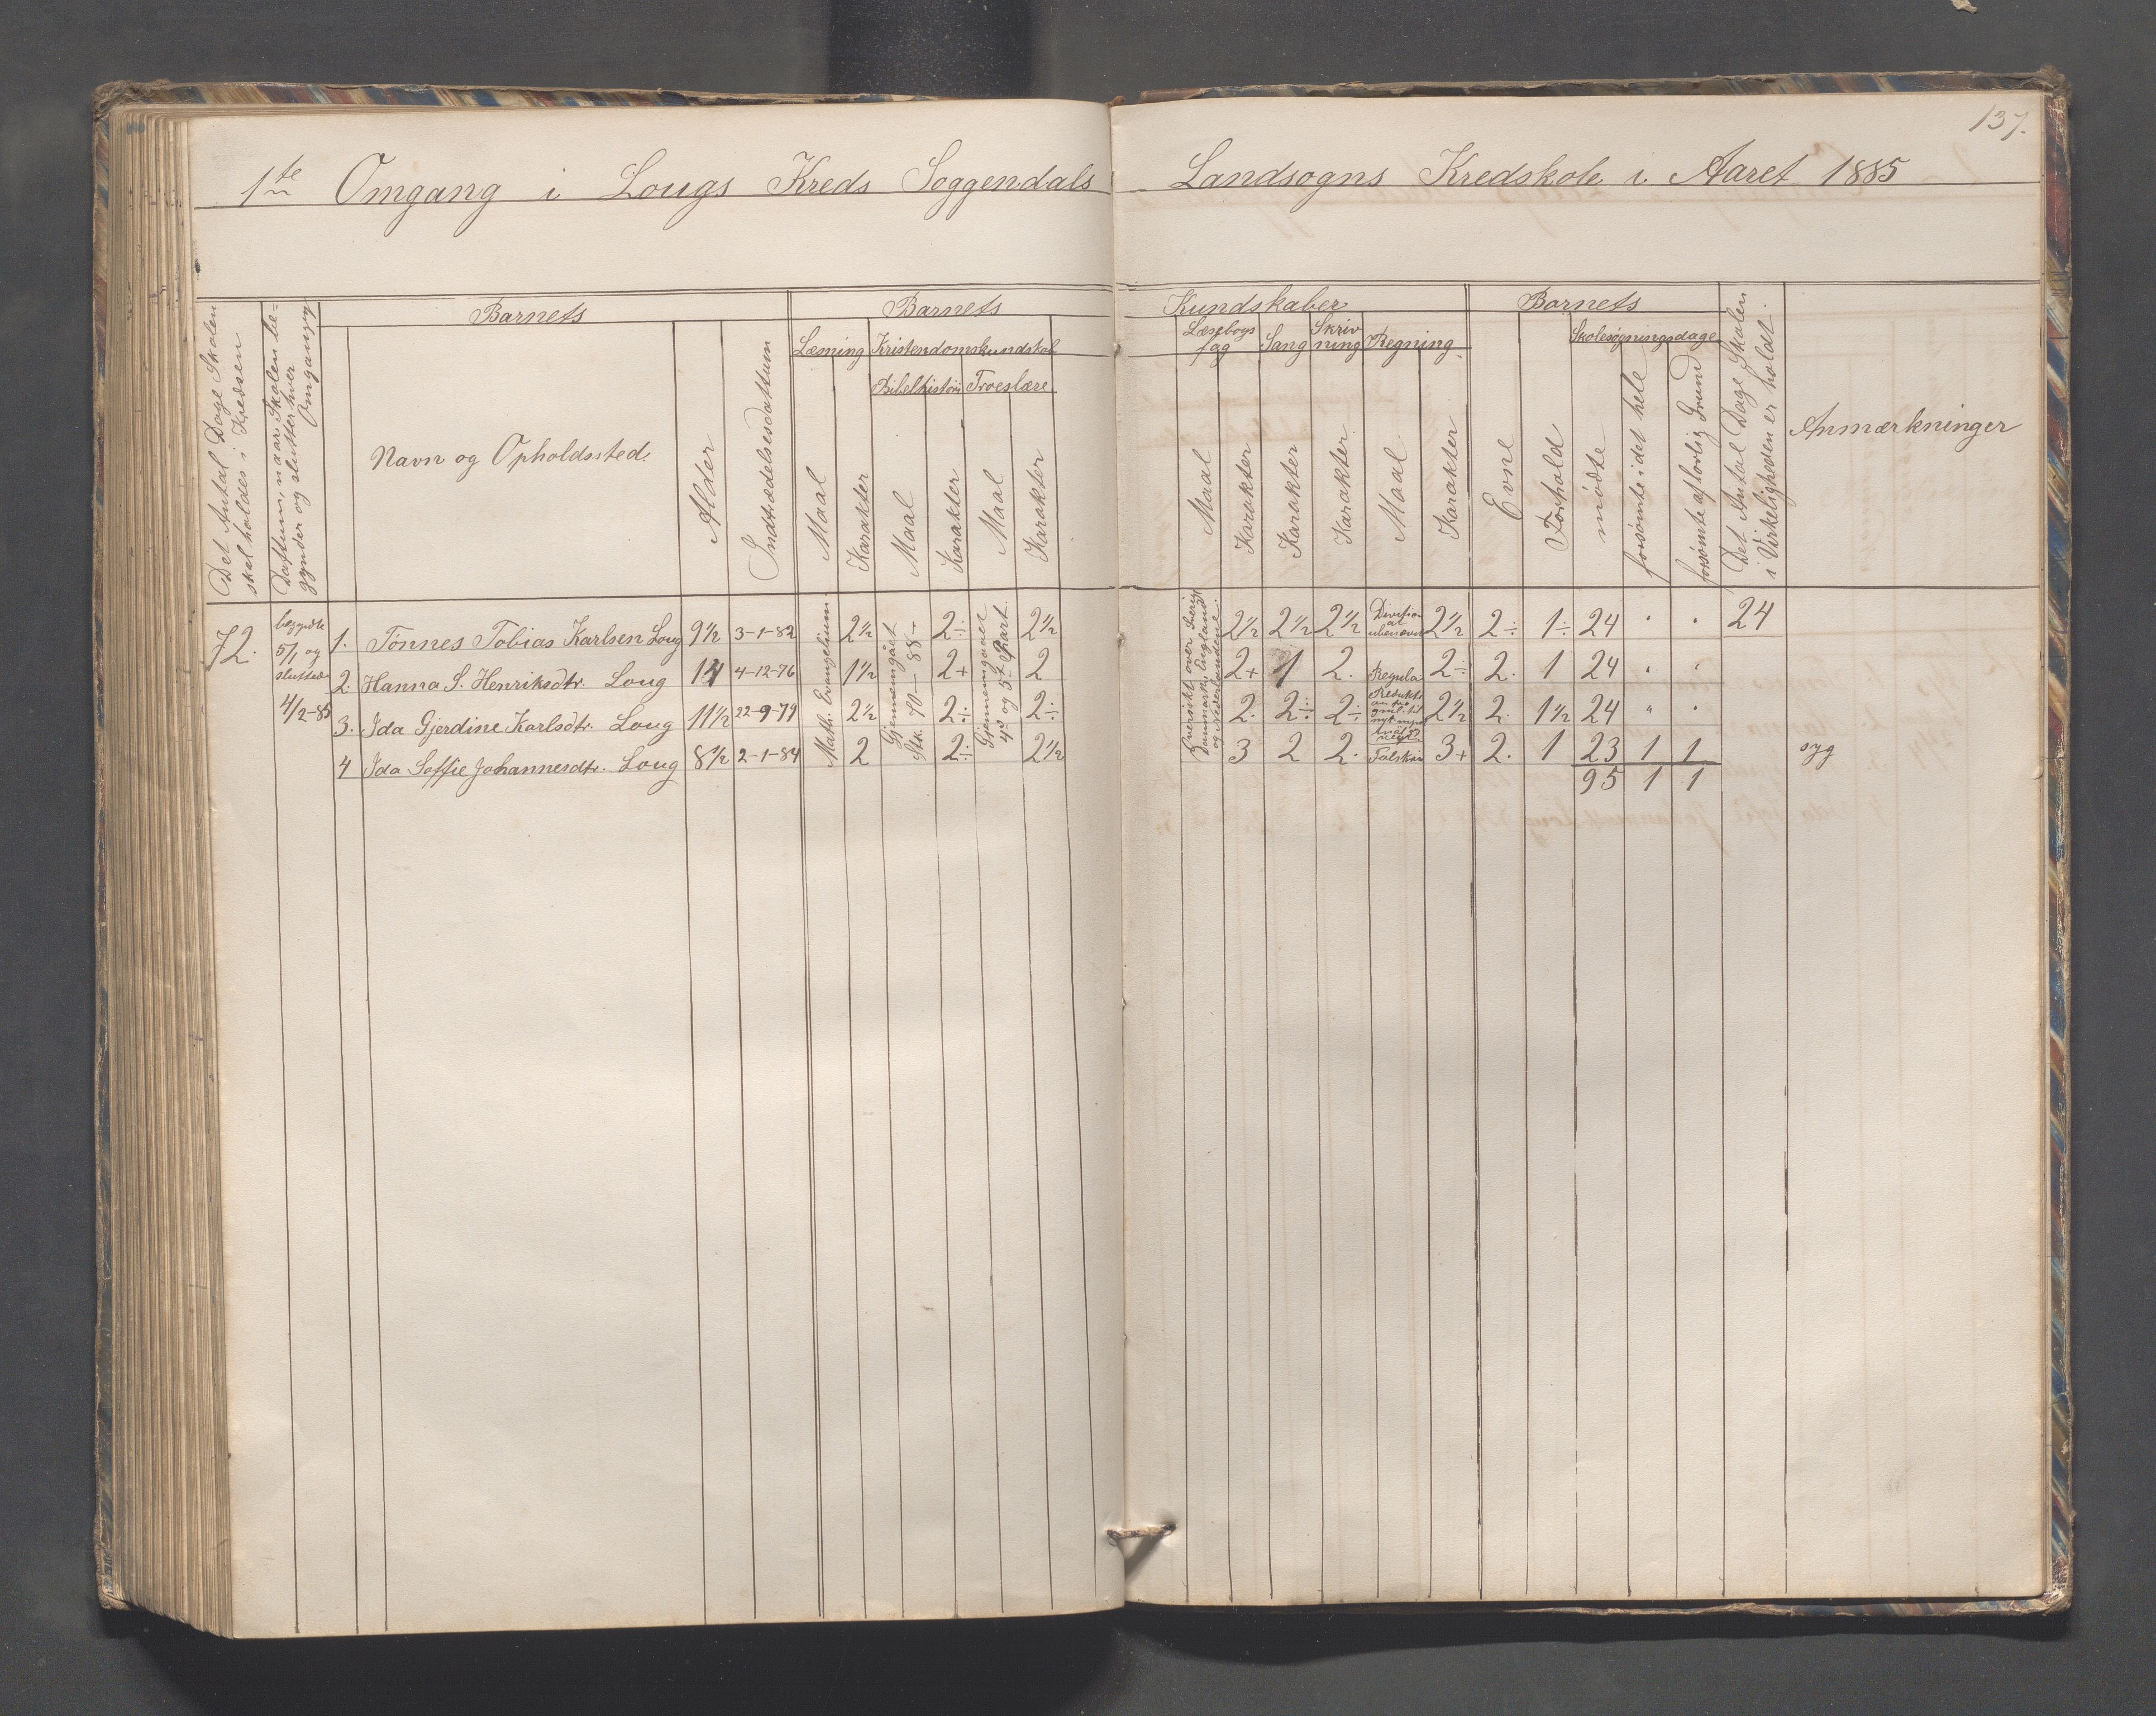 137.
1ste Omgang i Lougs Kreds Soggendals Landsogns Kredskole i Aaret 1885
Det Antal Dage Skolen skal holdes i Kredsen
Dattum, naar Skolen begynder og slutter hver Omgang
Barnets
Navn og Opholdssted.
Alder
Indtrædelsesdattum
Barnets Kundskaber
Læsning
Maal
Karakter
Kristendomskundskab
Bibelhistorie
Maal
Karakter
Troeslære
Maal
Karakter
Læsebogs fag
Maal
Karakter
Sang
Karakter
Skrivning
Karakter
Regning
Maal
Karakter
Barnets
Evne
Forhold
Skolesøgningsdage
mødte
forsømte i det hele
forsømte af lovlig Grund
Det Antal Dage Skolen i Virkeligheden er holdt.
Anmærkninger
72.
begyndte 5/1 og sluttede 4/2-85
Math. Evangelium
Gjennemgået Stk. 70-88-
Gjennemgaael 4de og 5te Part.
Oversikt over Sverige Danmark, England og Nederlandene.
1. Tønnes Tobias Karlsen Loug 9½ 3-1-82 2½ 2÷ 2½ 2½ 2½ 2½ Division 2½ 2÷ 1÷ 24 " " 24
2. Hanna S. Henriksdtr. Loug 14 4-12-76 1½ 2+ 2 2+ 1 2. Regula 2÷ 2. 1 24 " "
3. Ida Gjerdine Karlsdtr. Loug 11½ 22-9-79 2½ 2÷ 2÷ 2. 2÷ 2÷ 2½ 2. 1½ 24 " "
4 Ida Soffie Johannesdtr. Loug 8½ 2-1-84 2 2÷ 2½ 3 2 2. 3+ 2. 1 23 1 1 syg
95 1 1